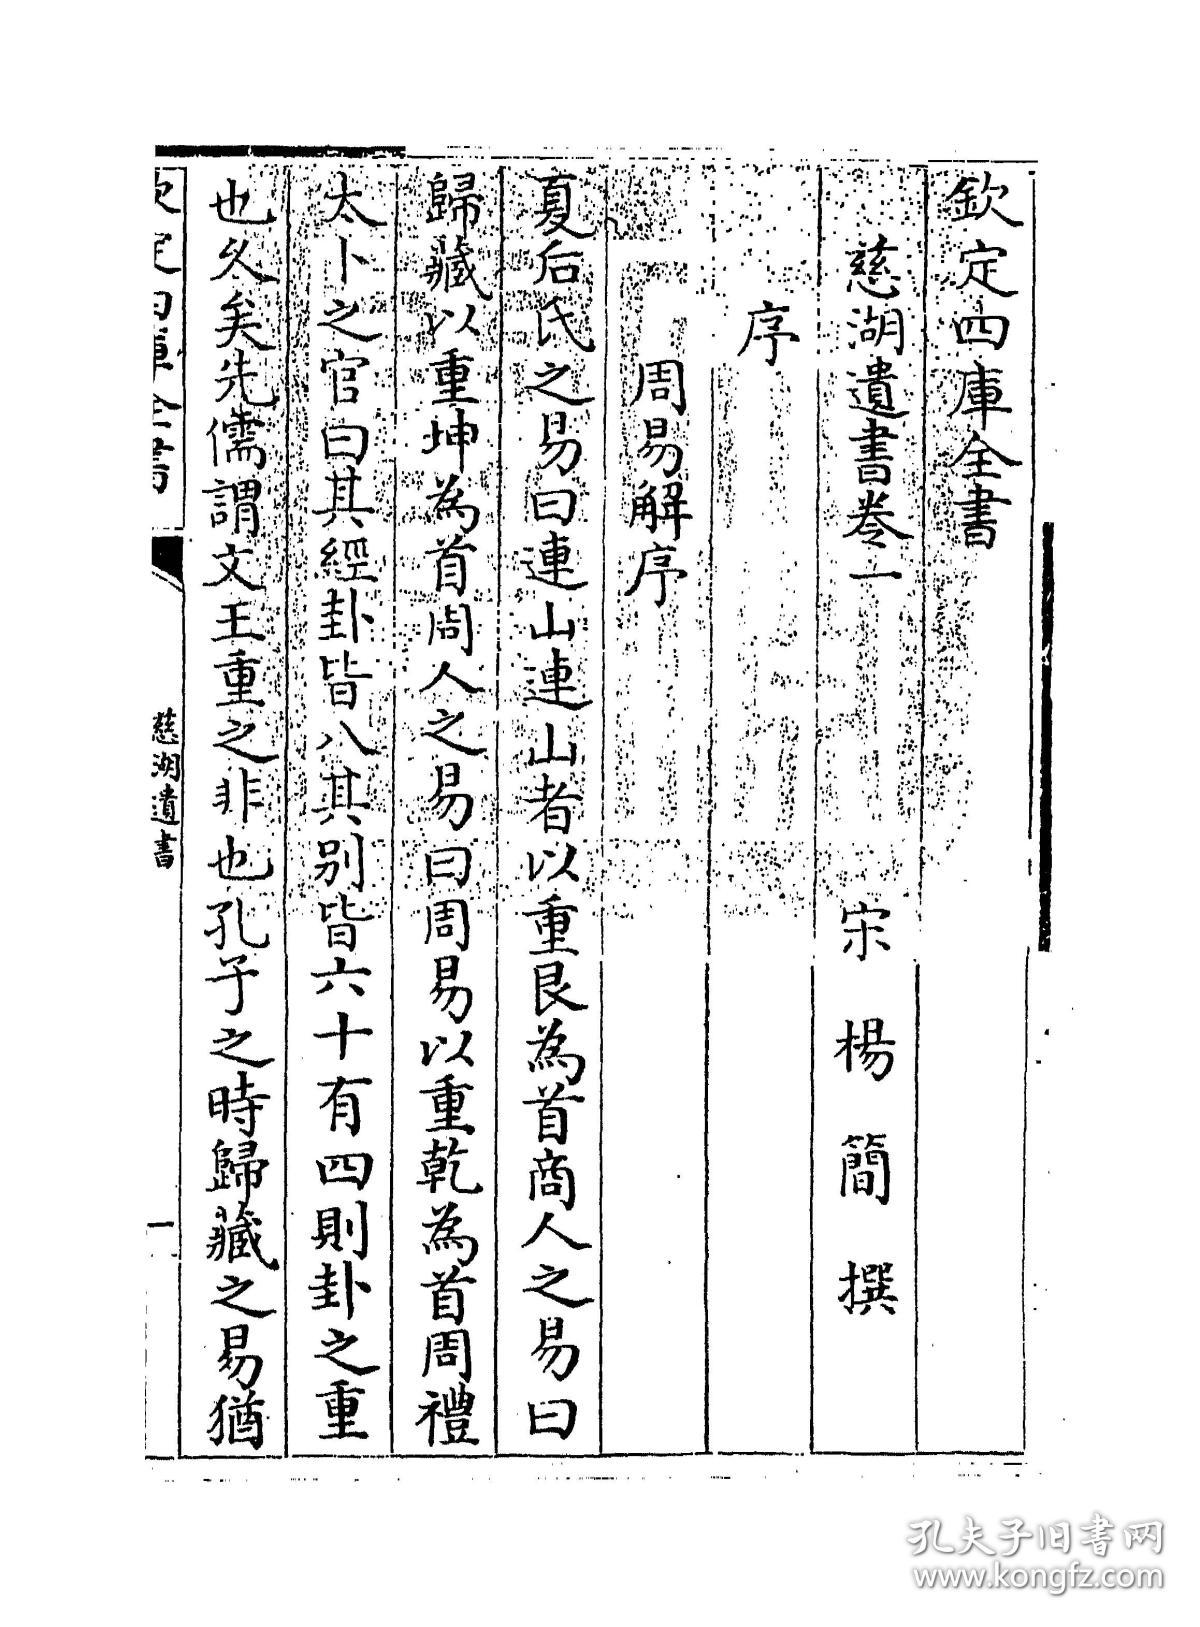 欽定四庫全書
慈湖遺書卷一
宋 楊 簡 撰
序
周易解序
夏后氏之易曰連山連山者以重艮為首商人之易曰
歸藏以重坤為首周人之易曰周易以重乾為首周禮
太卜之官曰其經卦皆八其別皆六十有四則卦之重
也久矣先儒謂文王重之非也孔子之時歸藏之易猶
慈湖遺書
一
孔夫子旧书网
www.kongfz.com